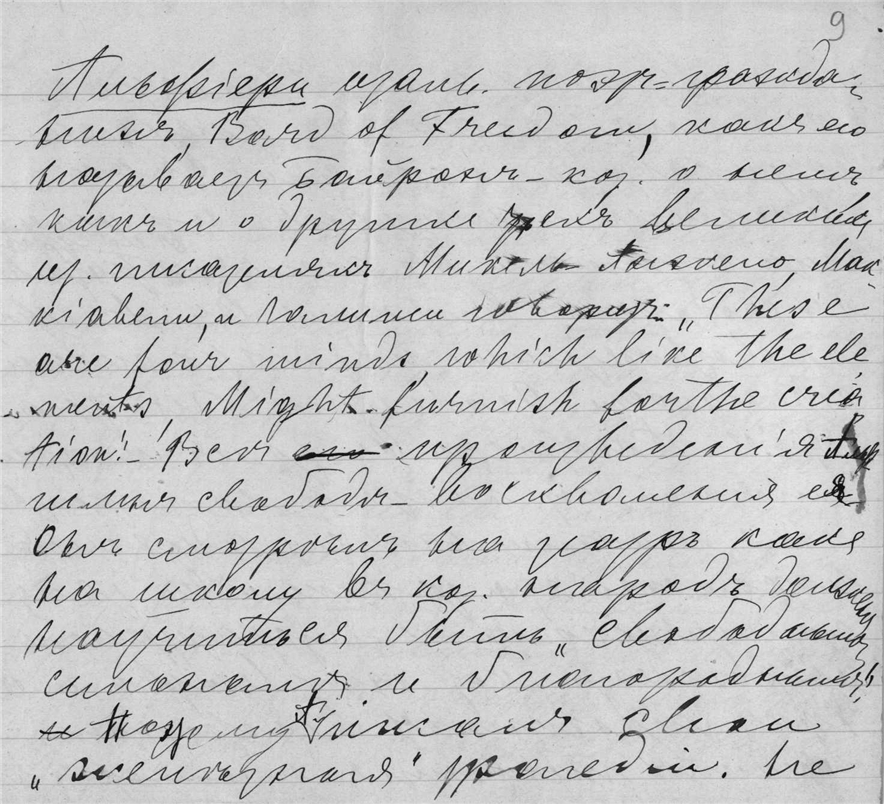 9
Альфіери итал. поэт-гражда-
нинъ, Bard of Freedom, какъ его
называетъ Байронъ – кот. о немъ
какъ и о другихъ трехъ великихъ
ит. писателяхъ Микель Анжело, Мак-
кіавели, и Галилеи говоритъ „These
are four minds, which like the ele
ments, Might furnish forthe crea
tion!" – Всѣ произведенія
гимнъ свободѣ – восхваленія ея
Онъ смотрѣлъ на театръ какъ
на школу въ кот. народъ долженъ
научиться быть „свободнымъ
сильнымъ и благороднымъ"
Потому писалъ свои
трагедіи. Не